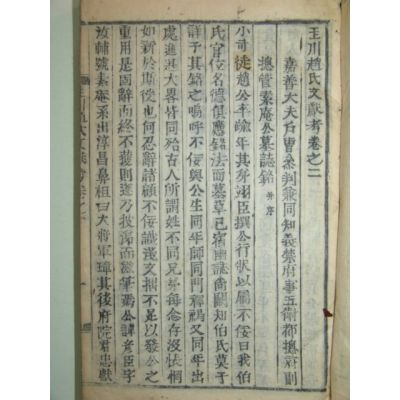 玉川趙氏文獻考卷之二
嘉善大夫戶曹參判兼同知義禁府事五衛都摠府副
摠管素庵公墓誌銘 并序
小司徒趙公卒踰年其弟翊臣撰公行狀以屬不佞曰我伯
氏官位名德俱應銘法而墓草已宿幽誌尙闕知伯氏莫于
詳子其銘之嗚呼不佞與公生同年師同門釋褐又同年出
處進退大畧皆同殆古人所謂姓不同兄弟每念存沒怳惘
如新於斯役也何忍辭諸顧不佞識淺文拙不足以發公之
重用是固辭而終不獲則遂乃披淚而濡筆焉公諱 臣字
汝輔號素庵系出淳昌鼻祖曰大將軍璋其後府院君忠獻